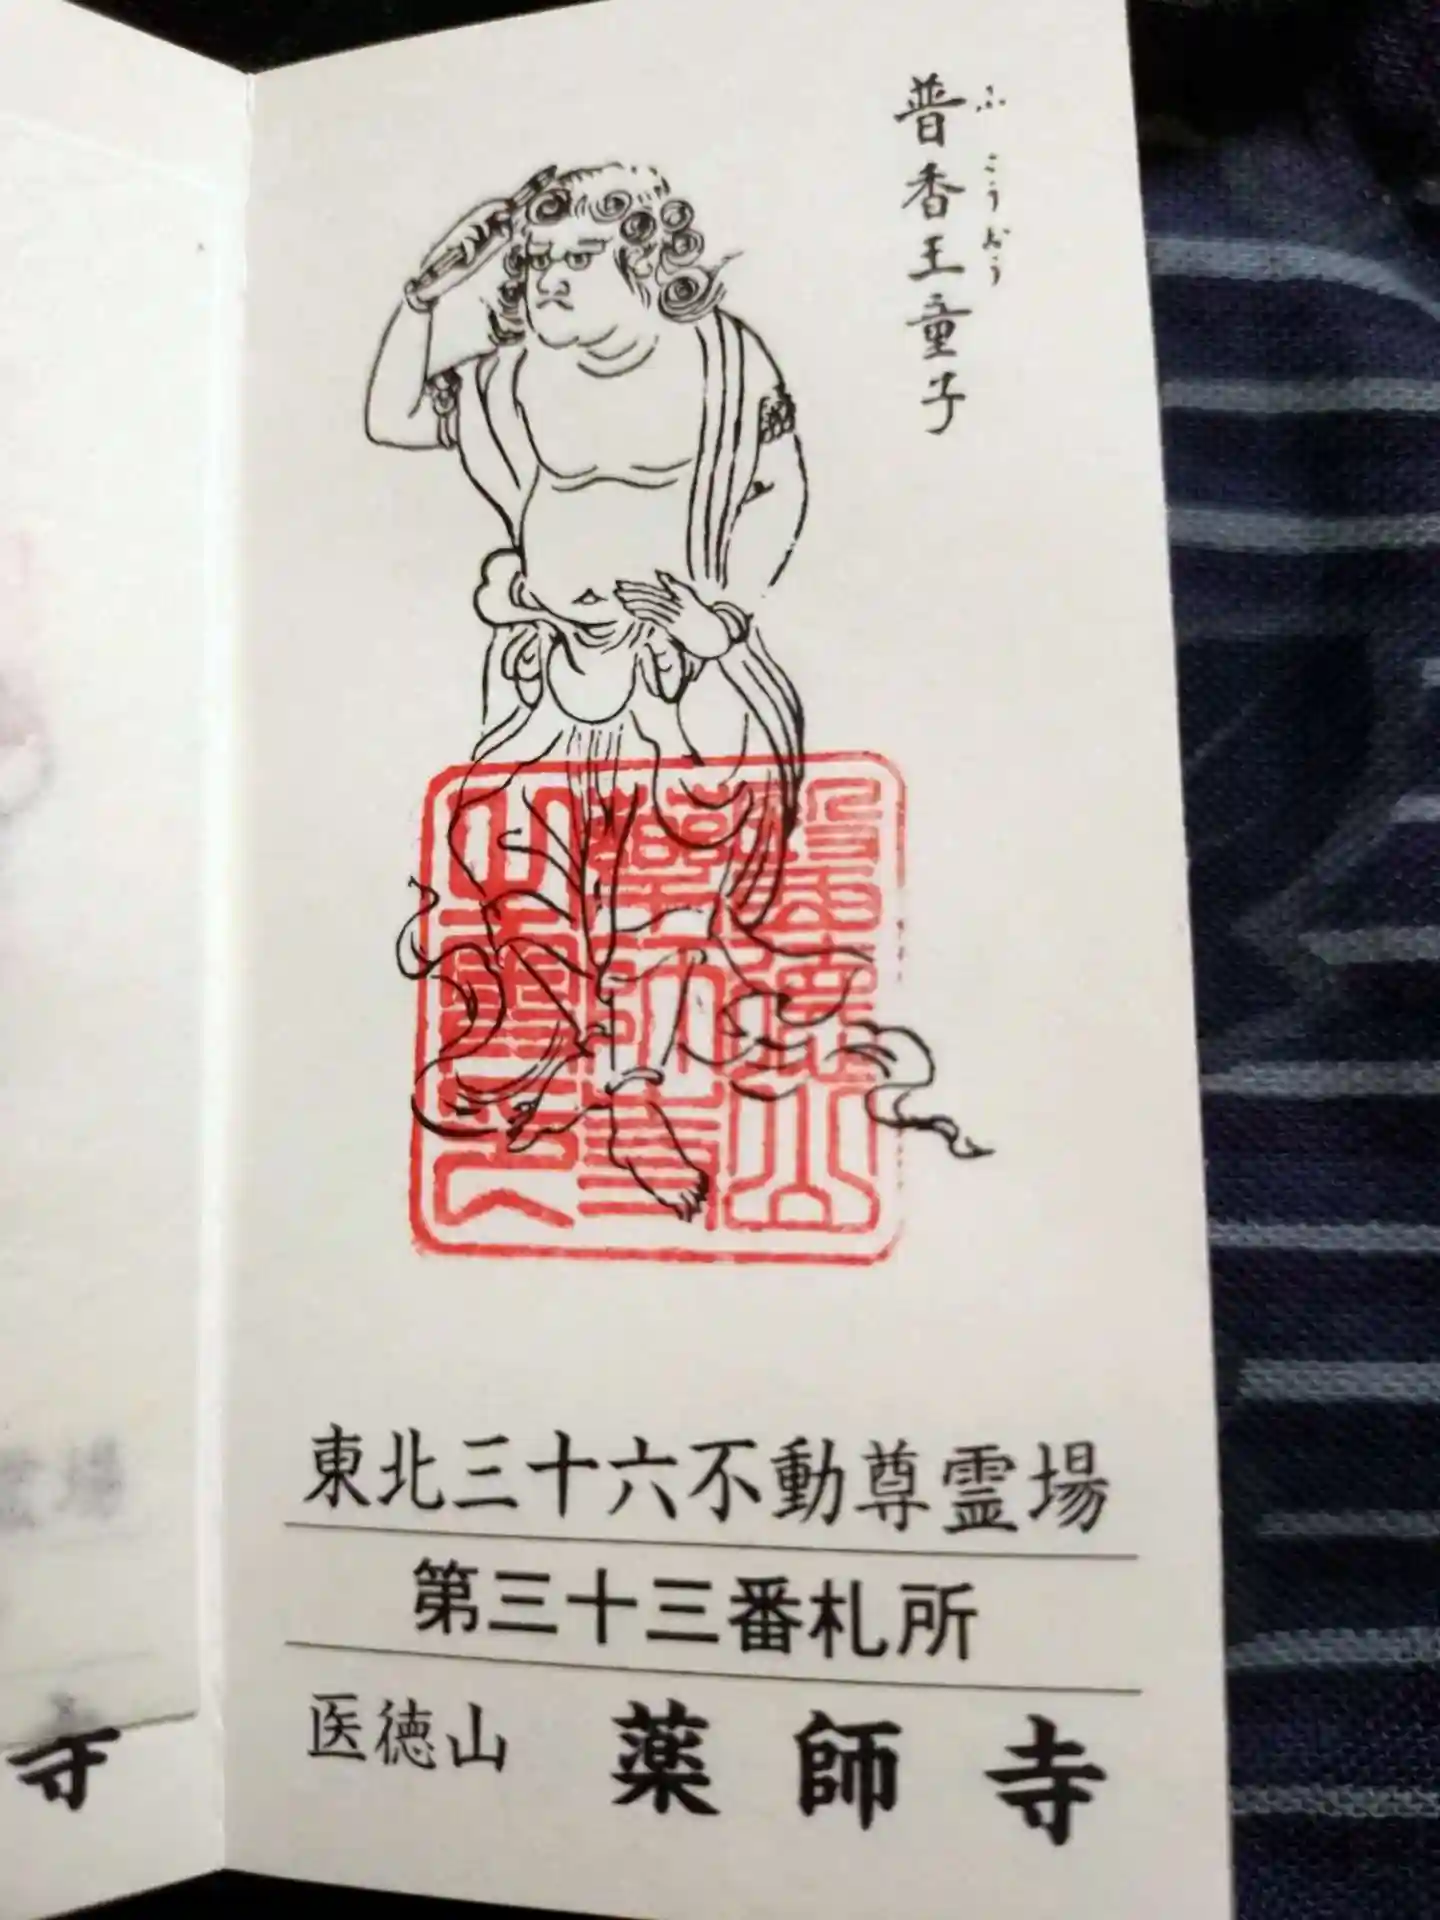 普香王童子
ふ こうおう
東北三十六不動尊霊場
第三十三番札所
医徳山 薬師寺
寺